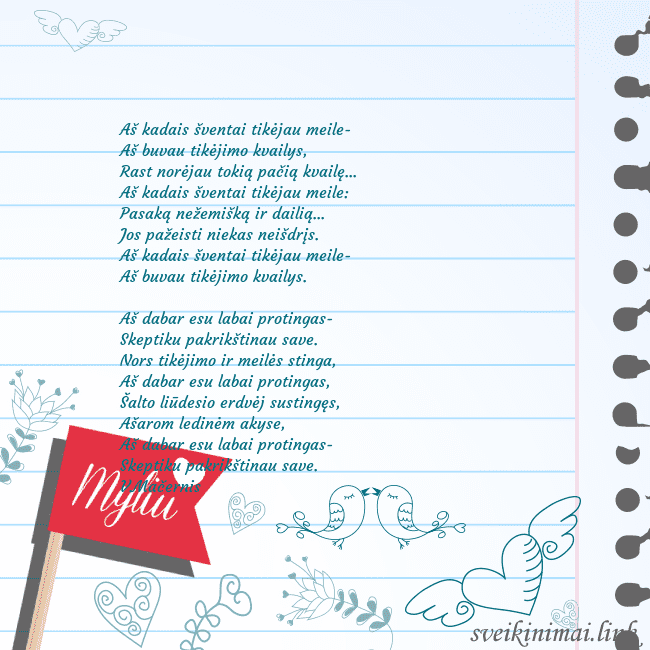 Aš kadais šventai tikėjau meile-
Aš buvau tikėjimo kvailys,
Rast norėjau tokią pačią kvailę...
Aš kadais šventai tikėjau meile:
Pasaką nežemišką ir dailią...
Jos pažeisti niekas neišdrįs.
Aš kadais šventai tikėjau meile-
Aš buvau tikėjimo kvailys.

Aš dabar esu labai protingas-
Skeptiku pakrikštinau save.
Nors tikėjimo ir meilės stinga,
Aš dabar esu labai protingas,
Šalto liūdesio erdvėj sustingęs,
Ašarom ledinėm akyse,
Aš dabar esu labai protingas-
Skeptiku pakrikštinau save.
V.Mačernis
Myliu
sveikinimai.link